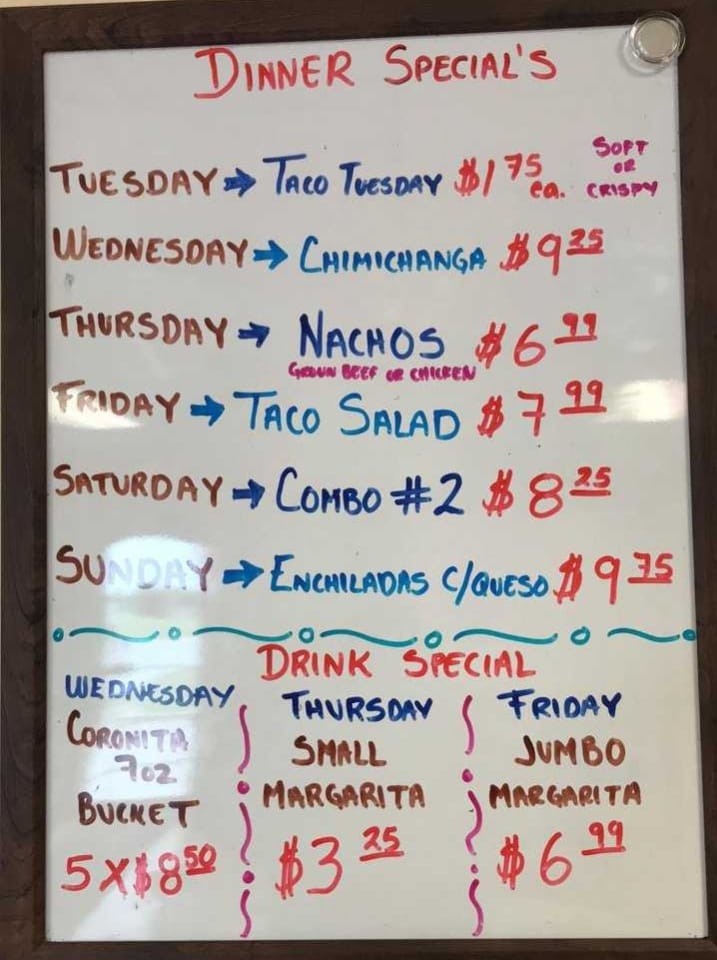 DINNER SPECIAL'S
TUESDAY → TACO TUESDAY $1 75 ea. SOFT OR CRISPY
WEDNESDAY → CHIMICHANGA $9 25
THURSDAY → NACHOS $6 99
GROUN BEEF OR CHICKEN
FRIDAY → TACO SALAD $7 99
SATURDAY → COMBO #2 $8 25
SUNDAY → ENCHILADAS C/QUESO $9 75
DRINK SPECIAL
WEDNESDAY
CORONITA
7OZ
BUCKET
5X$8 50
THURSDAY
SMALL
MARGARITA
$3 25
FRIDAY
JUMBO
MARGARITA
$6 99